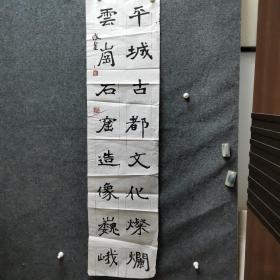 平城古都文化燦爛
雲崗石窟造像巍峨